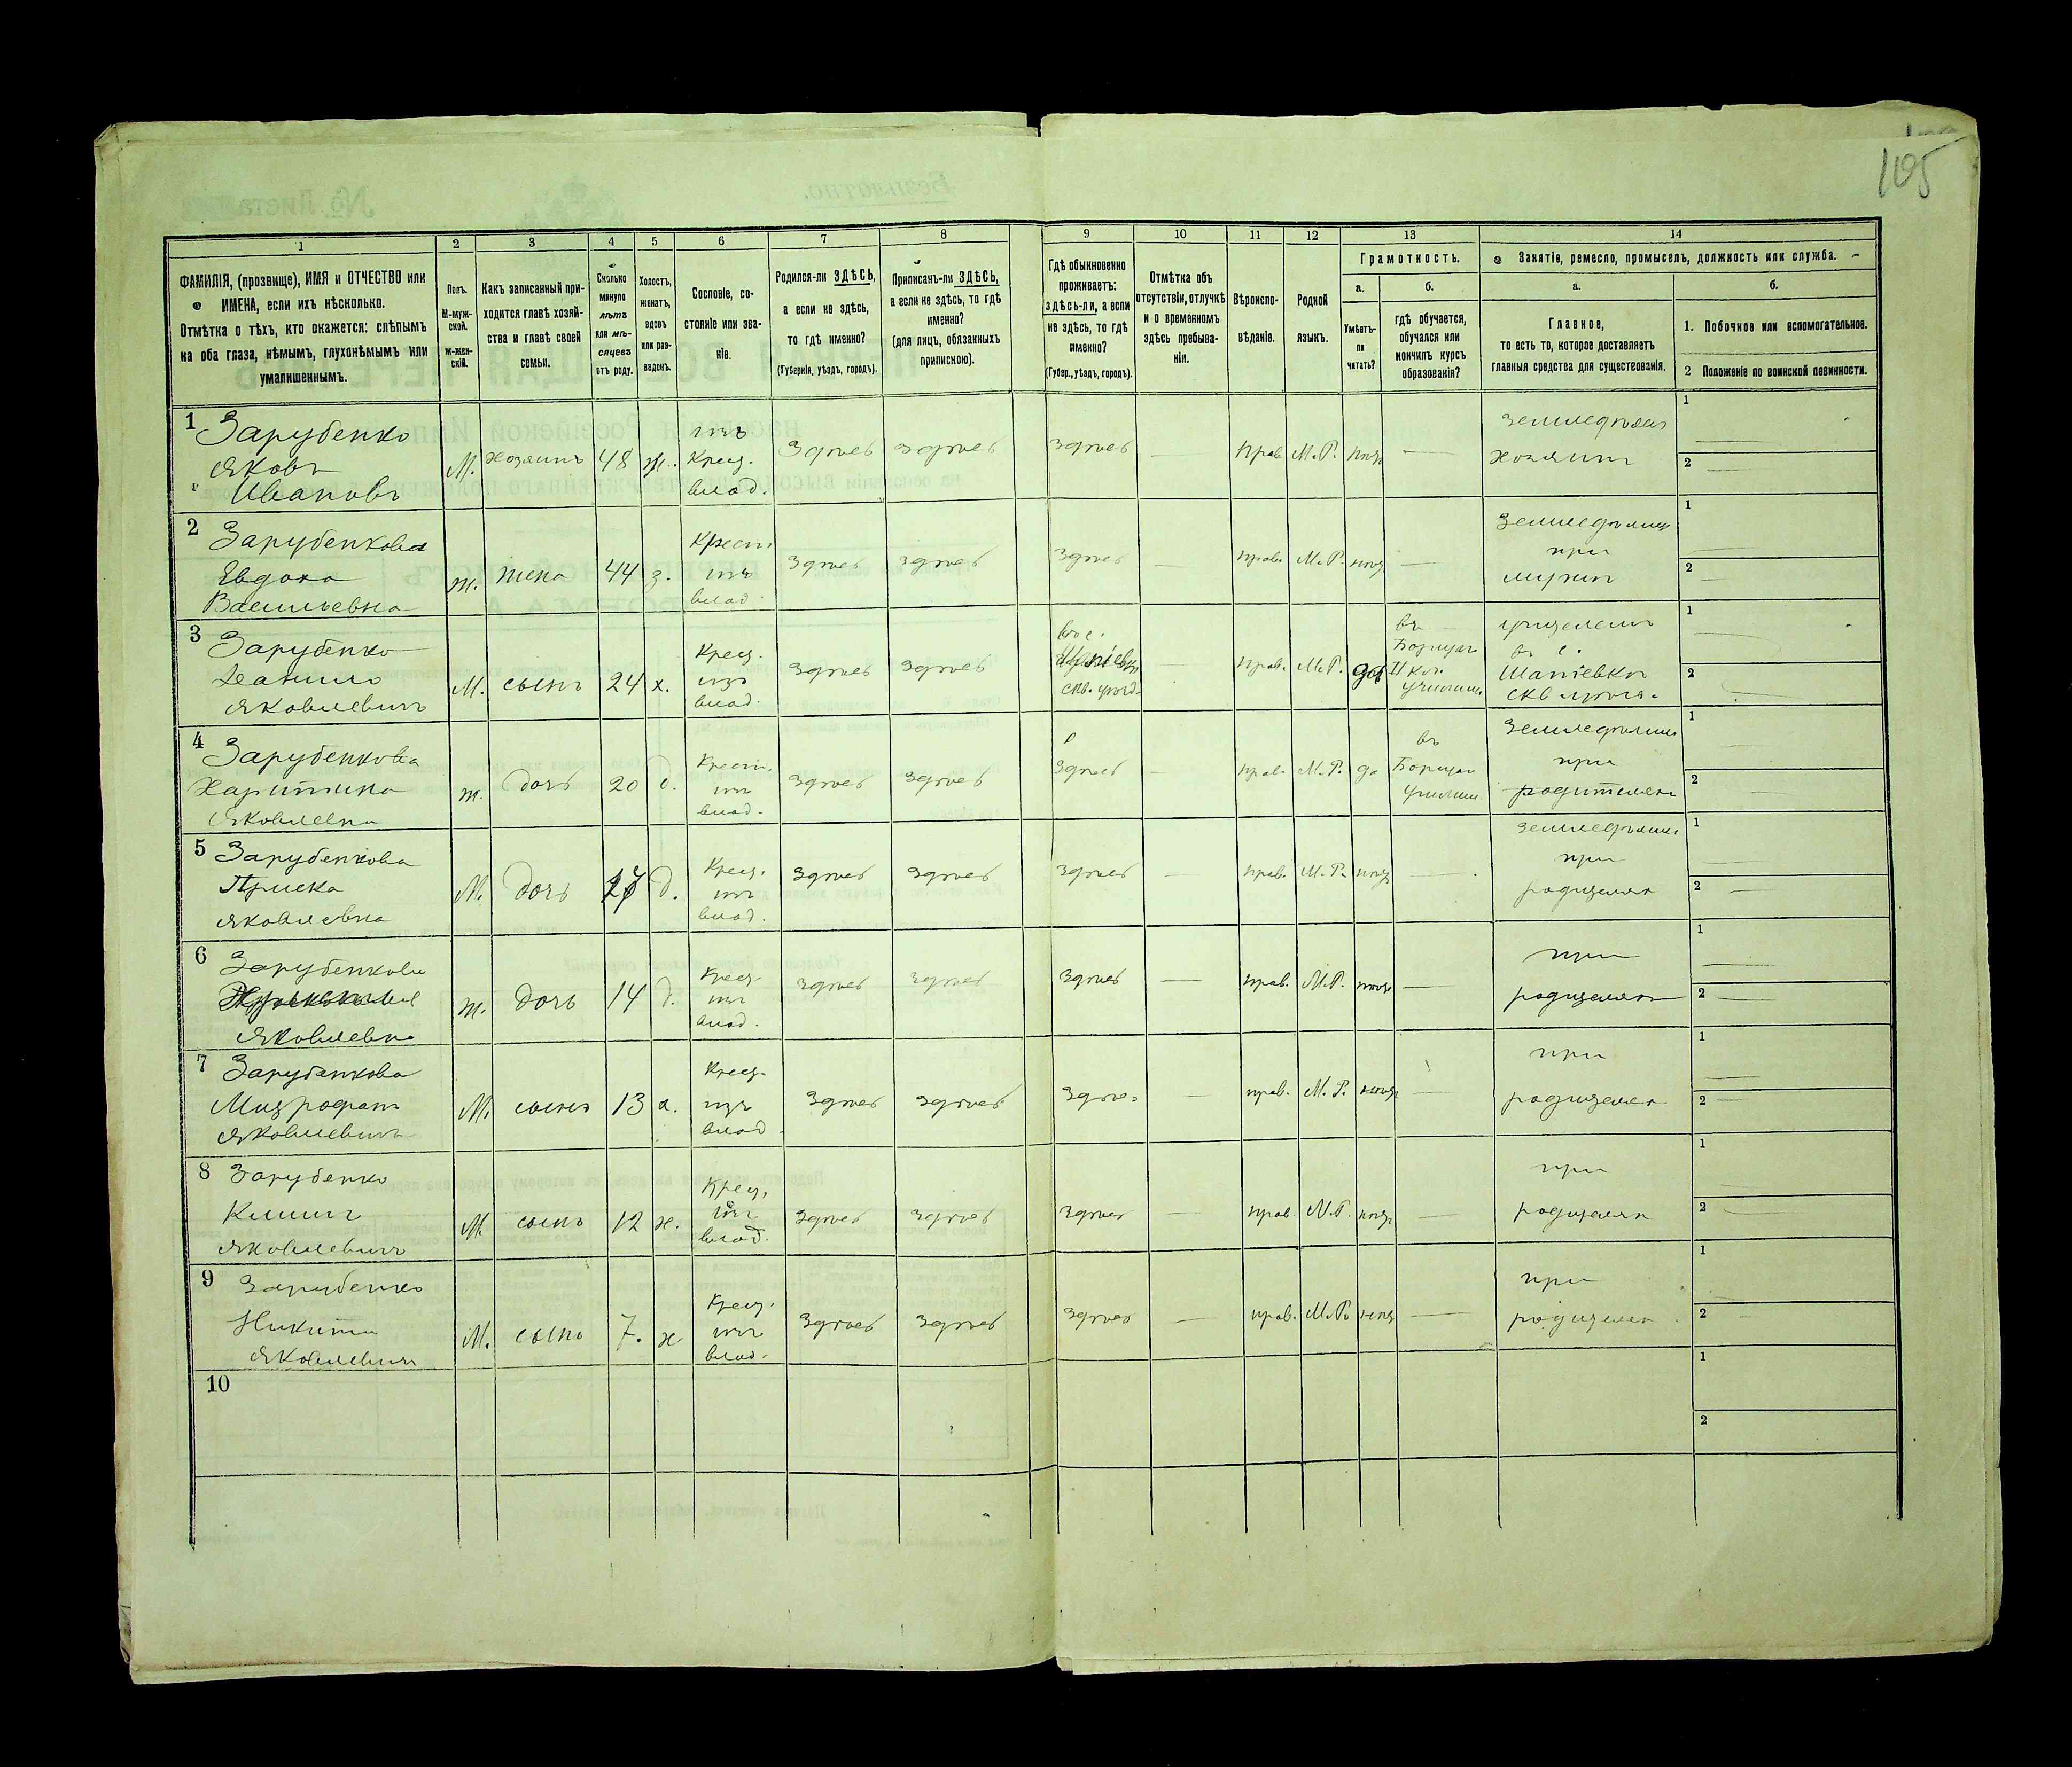 105
1
2
3
4
5
6
7
8
9
10
11
12
13
14
ФАМИЛІЯ, (прозвище), ИМЯ и ОТЧЕСТВО или
ИМЕНА, если ихъ нѣсколько.
Отмѣтка о тѣхъ, кто окажется: слѣпымъ
на оба глаза, нѣмымъ, глухонѣмымъ или
умалишеннымъ.
Полъ.
М-муж-
ской.
Ж-жен-
скій.
Какъ записанный при-
ходится главѣ хозяй-
ства и главѣ своей
семьи.
Сколько
минуло
лѣтъ
или мѣ-
сяцевъ
отъ роду.
Холостъ,
женатъ,
вдовъ
или раз-
веденъ.
Сословіе, со-
стояніе или зва-
ніе.
Родился-ли ЗДѢСЬ,
а если не здѣсь,
то гдѣ именно?
(Губернія, уѣздъ, городъ).
Приписанъ-ли ЗДѢСЬ,
а если не здѣсь, то гдѣ
именно?
(для лицъ, обязанныхъ
припискою).
Гдѣ обыкновенно
проживаетъ:
здѣсь-ли, а если
не здѣсь, то гдѣ
именно?
(Губер., уѣздъ, городъ).
Отмѣтка объ
отсутствіи, отлучкѣ
и о временномъ
здѣсь пребыва-
ніи.
Вѣроиспо-
вѣданіе.
Родной
языкъ.
Грамотность.
а.
Умѣетъ-
ли
читать?
б.
гдѣ обучается,
обучался или
кончилъ курсъ
образованія?
Занятіе, ремесло, промыселъ, должность или служба.
а.
Главное,
то есть то, которое доставляетъ
главныя средства для существованія.
б.
1. Побочное или вспомогательное.
2 Положеніе по воинской повинности.
1 Зарубенко
Яковъ
Ивановъ
М. хозяинъ 48 ж. изъ
Крест.
влад.
здѣсь здѣсь здѣсь — прав. М.Р. —
хозяинъ
1
2
2 Зарубенкова
Евдока
Васильевна
ж. жена 44 з. Крест.
изъ
влад.
здѣсь здѣсь здѣсь — прав. М.Р. —
при
мужѣ
1
2
3 Зарубенко
Данило
Яковлевичъ
М. сынъ 24 х. Крест.
изъ
влад.
здѣсь здѣсь
прав. М.Р.
учителемъ
въ с.
1
2
4 Зарубенкова
Харитина
Яковлевна
ж. дочь 20 д. Крест.
изъ
влад.
здѣсь здѣсь здѣсь — прав. М.Р. да въ
при
родителяхъ
1
2
5 Зарубенкова
Яковлевна
М. дочь д. Крест.
изъ
влад.
здѣсь здѣсь здѣсь — прав. М.Р. —
при
родителяхъ
1
2
6 Зарубенкова
Яковлевна
ж. дочь 14 д. Крест.
изъ
влад.
здѣсь здѣсь здѣсь — прав. М.Р. —
при
родителяхъ
1
2
7 Зарубенкова
Митрофанъ
Яковлевичъ
М. сынъ 13 х. Крест.
изъ
влад.
здѣсь здѣсь здѣсь — прав. М.Р. —
при
родителяхъ
1
2
8 Зарубенко
Климъ
Яковлевичъ
М. сынъ 12 х. Крест.
изъ
влад.
здѣсь здѣсь здѣсь — прав. М.Р. —
при
родителяхъ
1
2
9 Зарубенко
Никита
Яковлевичъ
М. сынъ 7. х. Крест.
изъ
влад.
здѣсь здѣсь здѣсь — прав. М.Р. —
при
родителяхъ
1
2
10
1
2